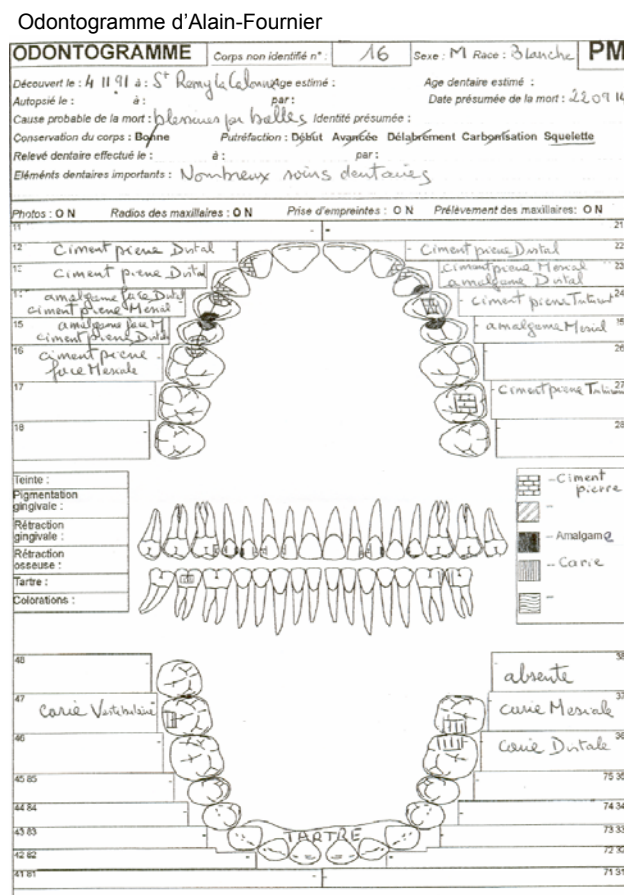 Odontogramme d'Alain-Fournier
ODONTOGRAMME Corps non identifié n° : 16 Sexe : M Race : Blanche PM
Découvert le : 4 11 91 à : St Remy la Calonne Age estimé : Age dentaire estimé :
Autopsié le : à : par : Date présumée de la mort : 22 09 14
Cause probable de la mort : blessures par balles Identité présumée :
Conservation du corps : Bonne Putréfaction : Début Avancée Délabrement Carbonisation Squelette
Relevé dentaire effectué le : à : par :
Eléments dentaires importants : Nombreux soins dentaires
Photos : O N Radios des maxillaires : O N Prise d'empreintes : O N Prélèvement des maxillaires : O N
11 21
12 ciment pierre Distal - - Ciment pierre Distal 22
ciment pierre Distal ciment pierre Mesial 23
amalgame Distal
amalgame face Distal - ciment pierre 24
ciment pierre Mesial
15 amalgame face M - amalgame Mesial
ciment pierre Distal
16 ciment pierre 26
face Mesiale
17 - Ciment pierre 27
18 28
Teinte :
Pigmentation
gingivale :
Rétraction
gingivale :
Rétraction
osseuse :
Tartre :
Colorations :
- Ciment
pierre
-
- Amalgame
- Carie
-
48 absente 38
47 carie Vestibulaire carie Mesiale 37
46 Carie Distale 36
45 85 75 35
44 84 74 34
43 83 TARTRE 73 33
42 82 72 32
41 81 71 31